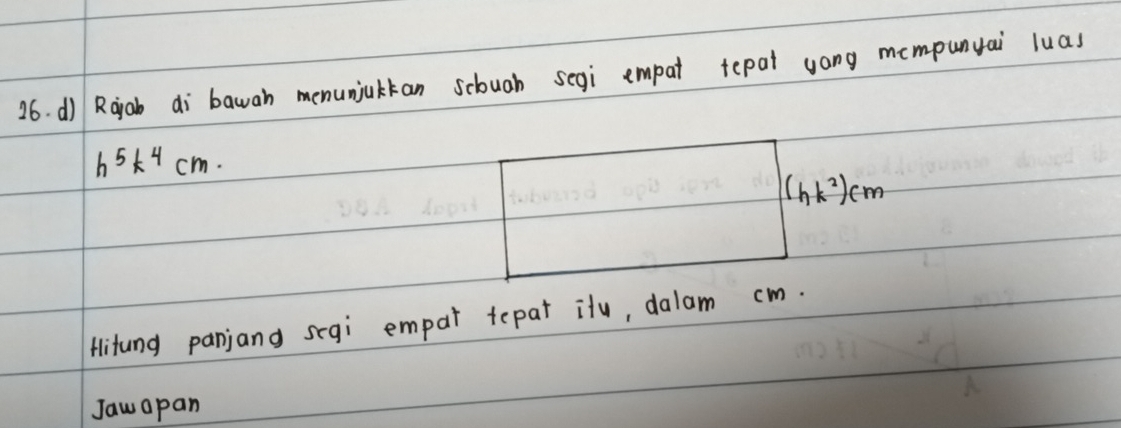 26. d) Rajah di bawah menunjukkan sebuah segi empat tepat yang mempunyai luas
h⁵k⁴ cm.
(hk²)cm
Hitung panjang segi empat tepat itu, dalam cm.
Jawapan